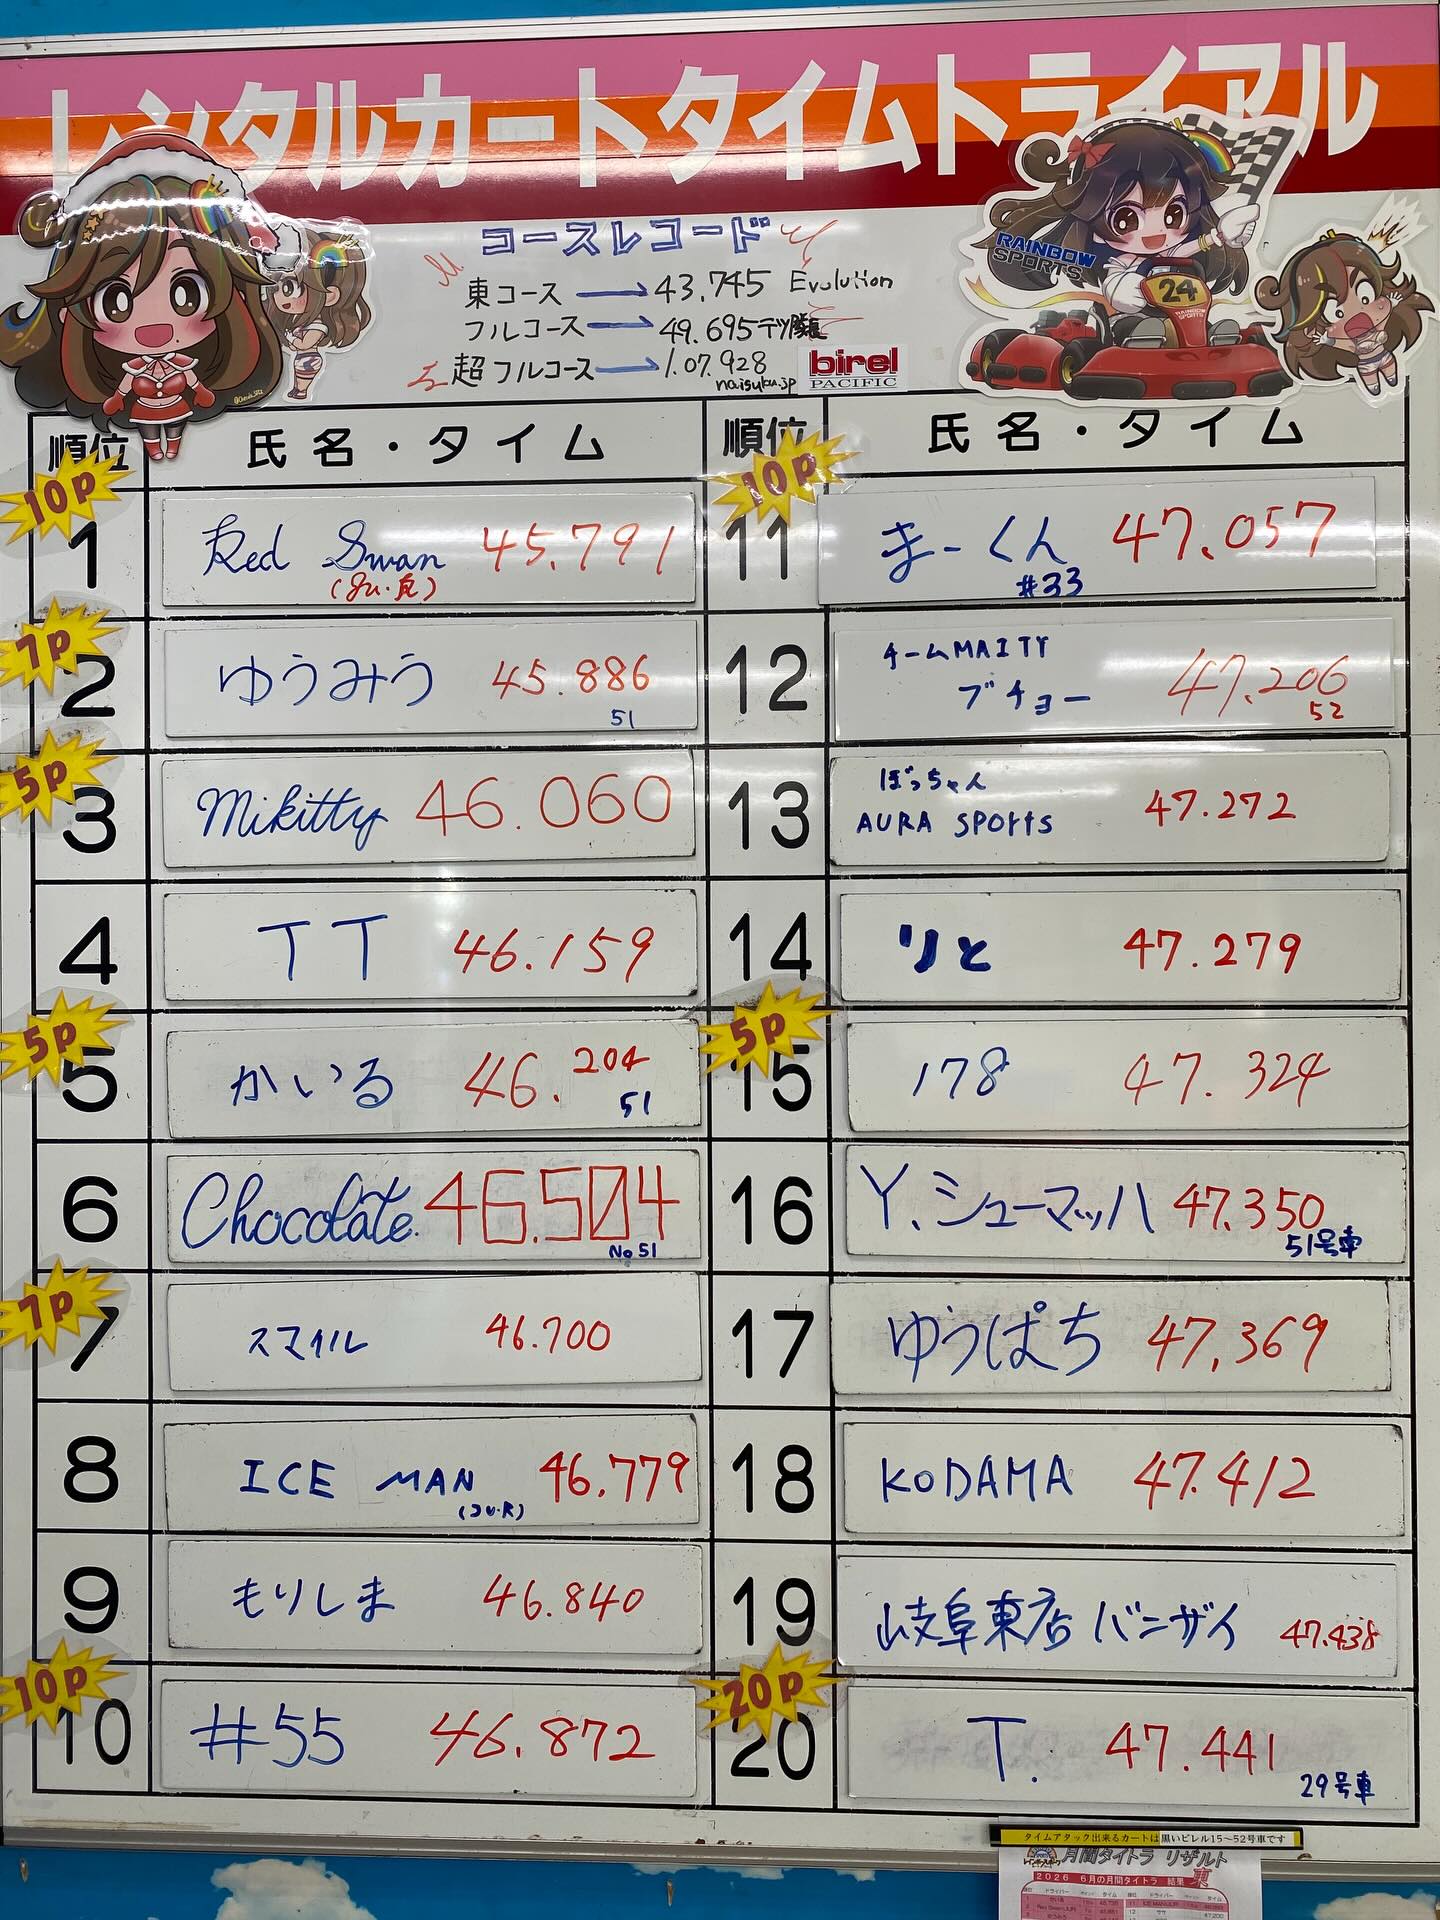 レンタルカートタイムトライアル
コースレコード
東コース → 43.745 Evolution
フルコース → 49.695 テツ隊長
超フルコース → 1.07.928
naisuku.jp
birel
PACIFIC
RAINBOW
SPORTS
24
順位 氏名・タイム
10p
1 Red Swan 45.791
7p
2 ゆうみう 45.886
51
5p
3 Mikitty 46.060
4 TT 46.159
5p
5 かいる 46.204
51
6 Chocolate. 46.504
No 51
7p
7 スマイル 46.700
8 ICE MAN 46.779
9 もりしま 46.840
10p
10 #55 46.872
順位 氏名・タイム
10p
11 まーくん 47.057
#33
12 チームMAITY
ブチョー 47.206
52
13 ぼっちゃん
AURA SPOrts 47.272
14 りと 47.279
5p
15 178 47.324
16 Y.シューマッハ 47.350
51号車
17 ゆうぱち 47.369
18 KODAMA 47.412
19 岐阜東店 バンザイ 47.438
20p
20 T. 47.441
29号車
タイムアタック出来るカートは黒いビレル15〜52号車です
月間タイトラ リザルト
2026 6月の月間タイトラ 結果 東